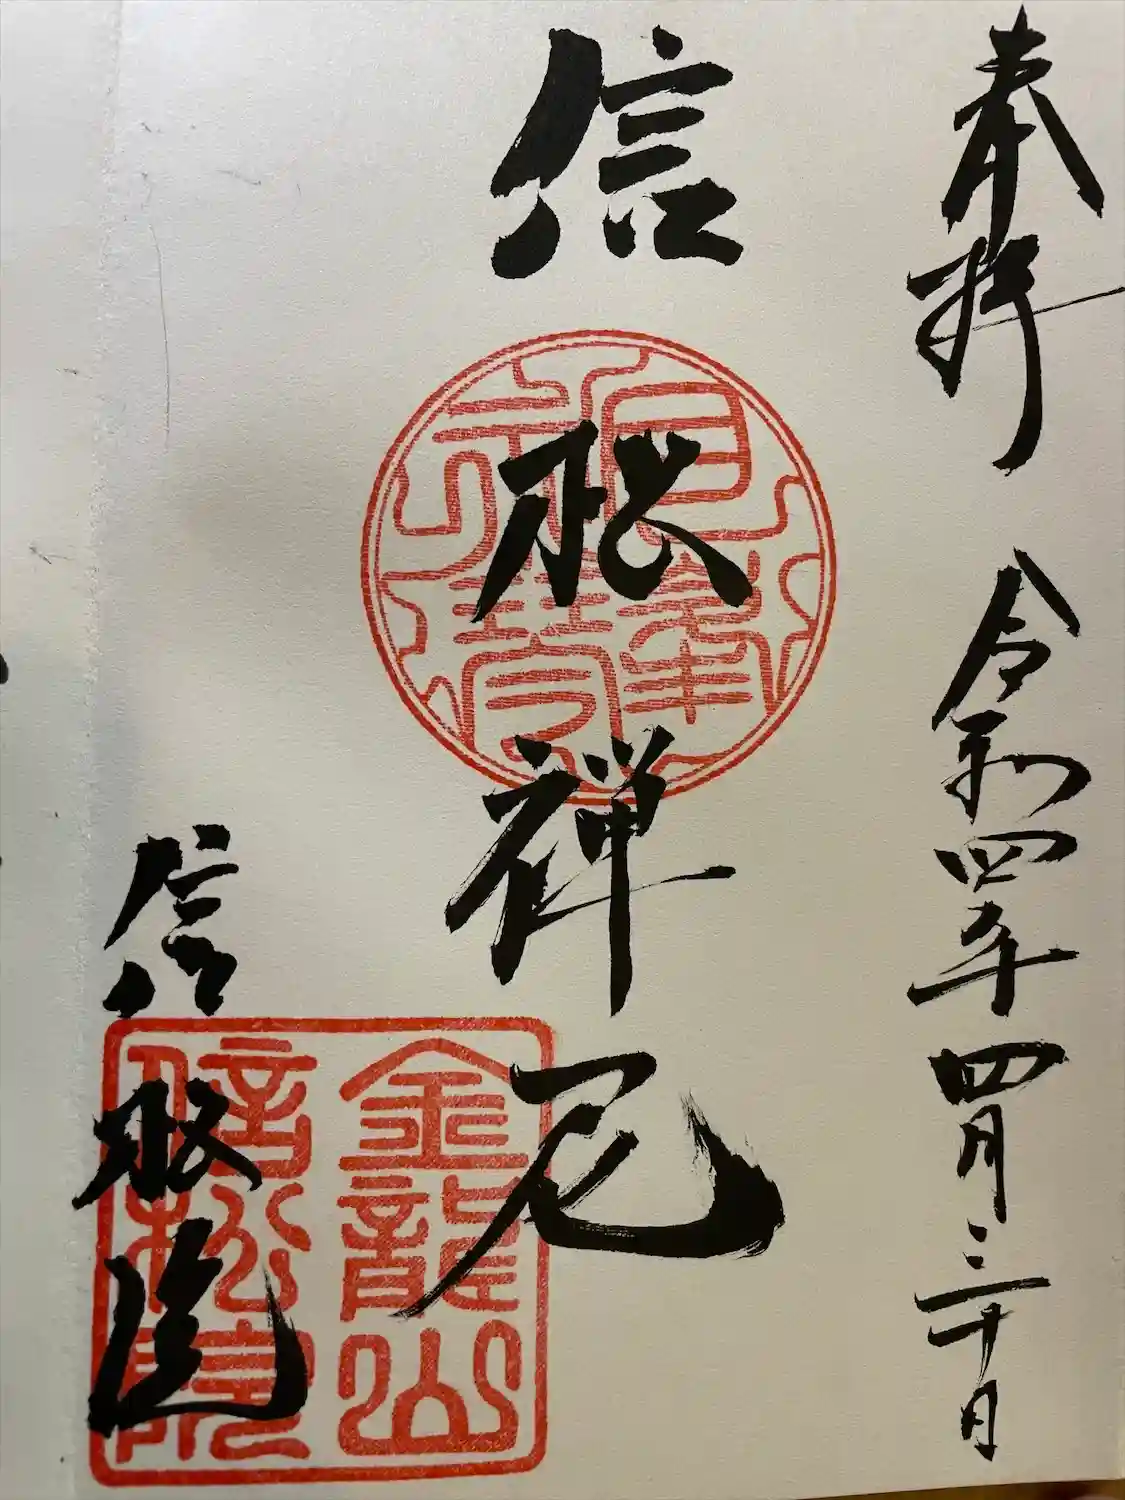 奉拝 令和四年四月三十日
信松禅尼
信松院
金龍山
信松院